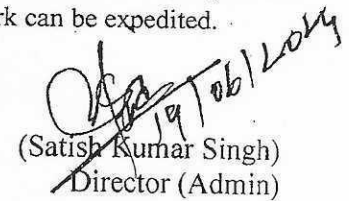 rk can be expedited.
19/06/2024
(Satish Kumar Singh)
Director (Admin)